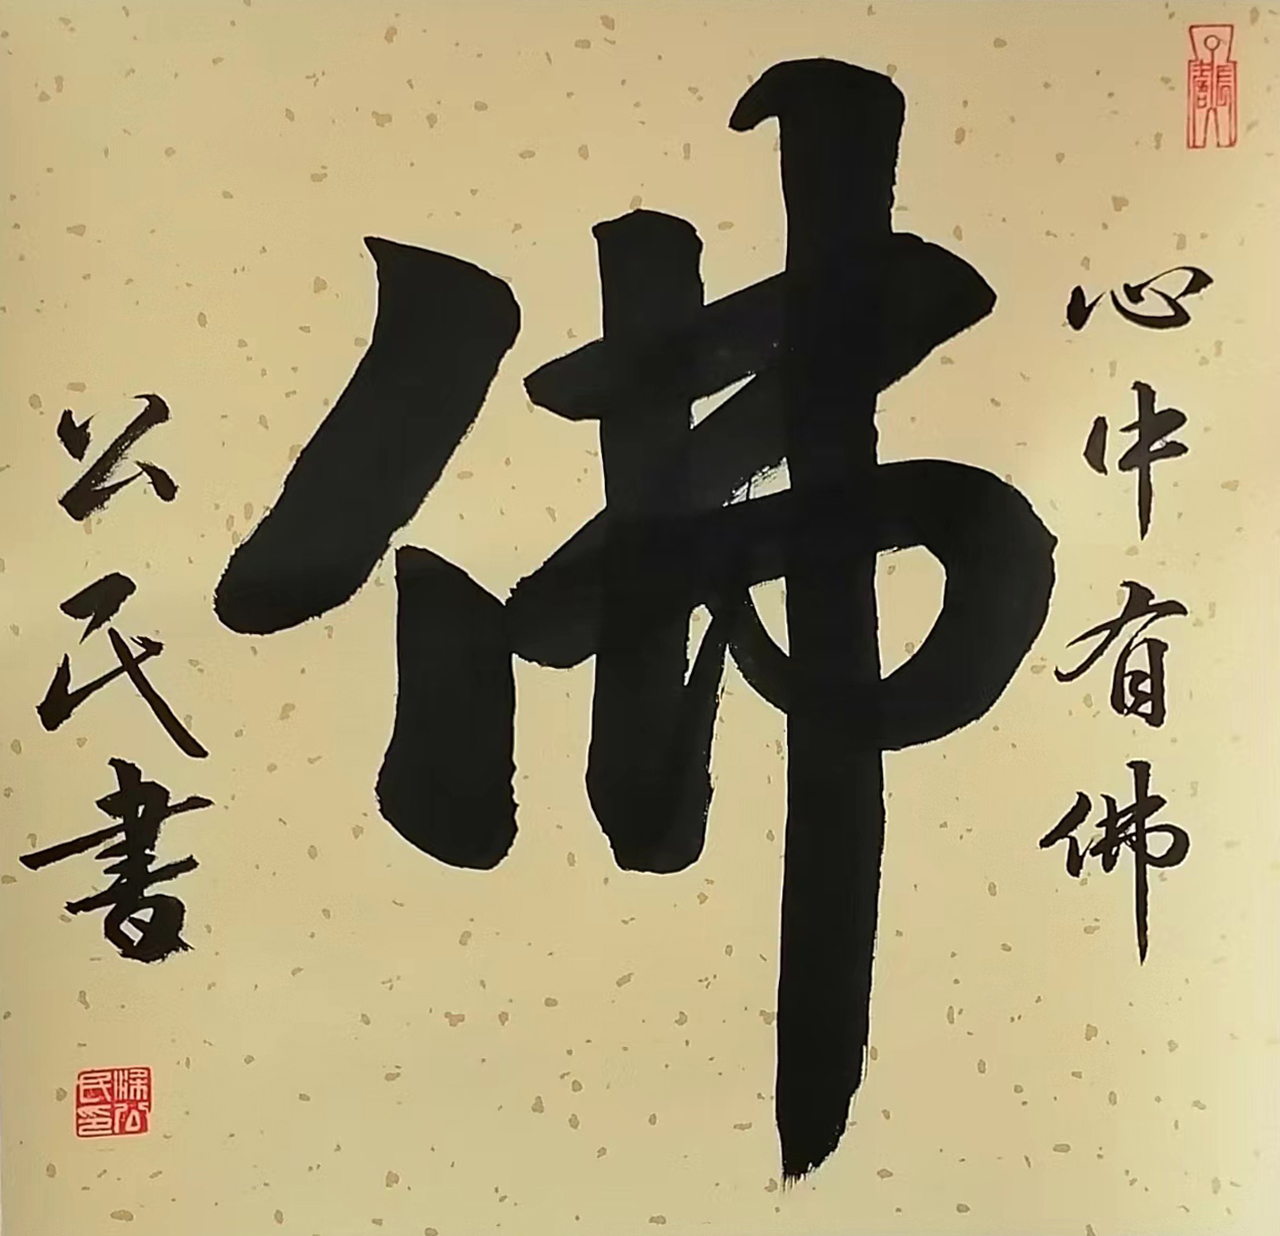 心中有佛
佛
公民書